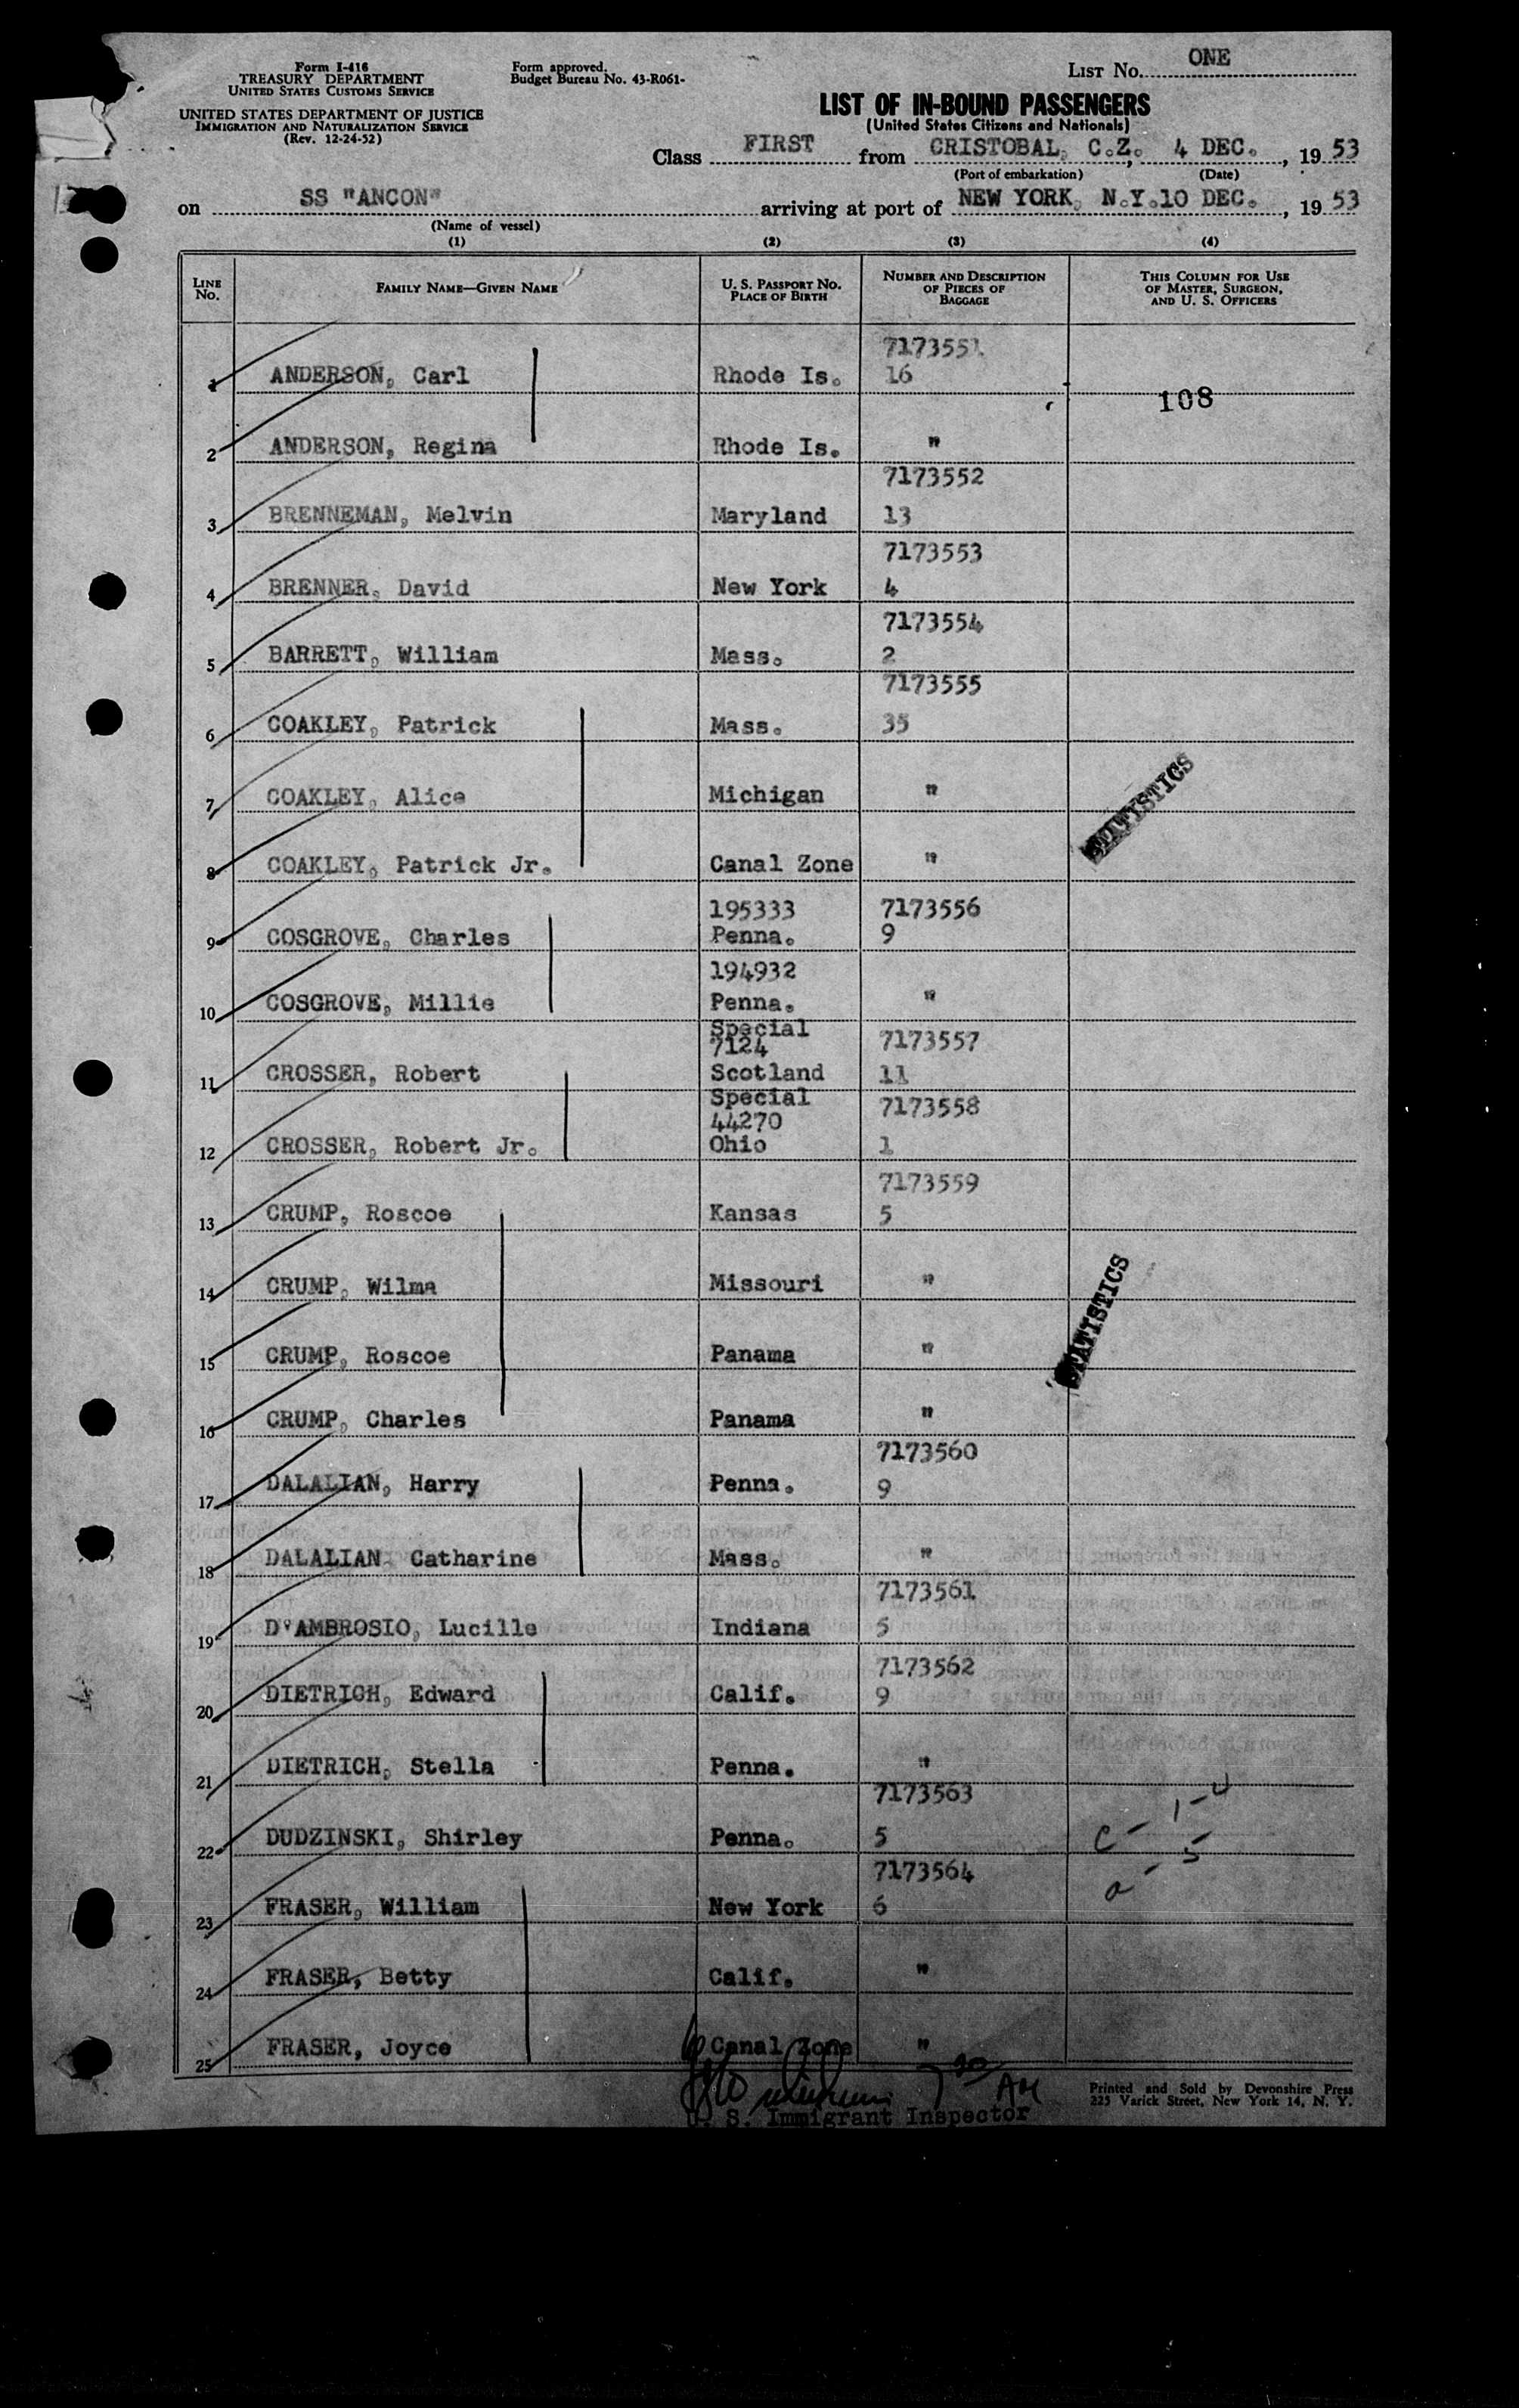 Form I-416
TREASURY DEPARTMENT
UNITED STATES CUSTOMS SERVICE
UNITED STATES DEPARTMENT OF JUSTICE
IMMIGRATION AND NATURALIZATION SERVICE
(Rev. 12-24-52)
Form approved.
Budget Bureau No. 43-R061-
LIST No. ONE
LIST OF IN-BOUND PASSENGERS
(United States Citizens and Nationals)
Class FIRST from CRISTOBAL, C.Z., 4 DEC., 19 53
(Port of embarkation) (Date)
on SS "ANCON" arriving at port of NEW YORK, N.Y. 10 DEC., 19 53
(Name of vessel)
(1) (2) (3) (4)
LINE No. FAMILY NAME—GIVEN NAME U. S. PASSPORT NO. PLACE OF BIRTH NUMBER AND DESCRIPTION OF PIECES OF BAGGAGE THIS COLUMN FOR USE OF MASTER, SURGEON, AND U. S. OFFICERS
7173551
1 ANDERSON, Carl Rhode Is. 16
108
2 ANDERSON, Regina Rhode Is. "
7173552
3 BRENNEMAN, Melvin Maryland 13
7173553
4 BRENNER, David New York 4
7173554
5 BARRETT, William Mass. 2
7173555
6 COAKLEY, Patrick Mass. 35
7 COAKLEY, Alice Michigan "
STATISTICS
8 COAKLEY, Patrick Jr. Canal Zone "
195333 7173556
9 COSGROVE, Charles Penna. 9
194932
10 COSGROVE, Millie Penna. "
Special
7124 7173557
11 CROSSER, Robert Scotland 11
Special 7173558
44270
12 CROSSER, Robert Jr. Ohio 1
7173559
13 CRUMP, Roscoe Kansas 5
14 CRUMP, Wilma Missouri "
STATISTICS
15 CRUMP, Roscoe Panama "
16 CRUMP, Charles Panama "
7173560
17 DALALIAN, Harry Penna. 9
18 DALALIAN, Catharine Mass. "
7173561
19 D'AMBROSIO, Lucille Indiana 5
7173562
20 DIETRICH, Edward Calif. 9
21 DIETRICH, Stella Penna. "
7173563
22 DUDZINSKI, Shirley Penna. 5
7173564
23 FRASER, William New York 6
24 FRASER, Betty Calif. "
25 FRASER, Joyce Canal Zone "
AM
U. S. Immigrant Inspector
Printed and Sold by Devonshire Press
225 Varick Street, New York 14, N. Y.